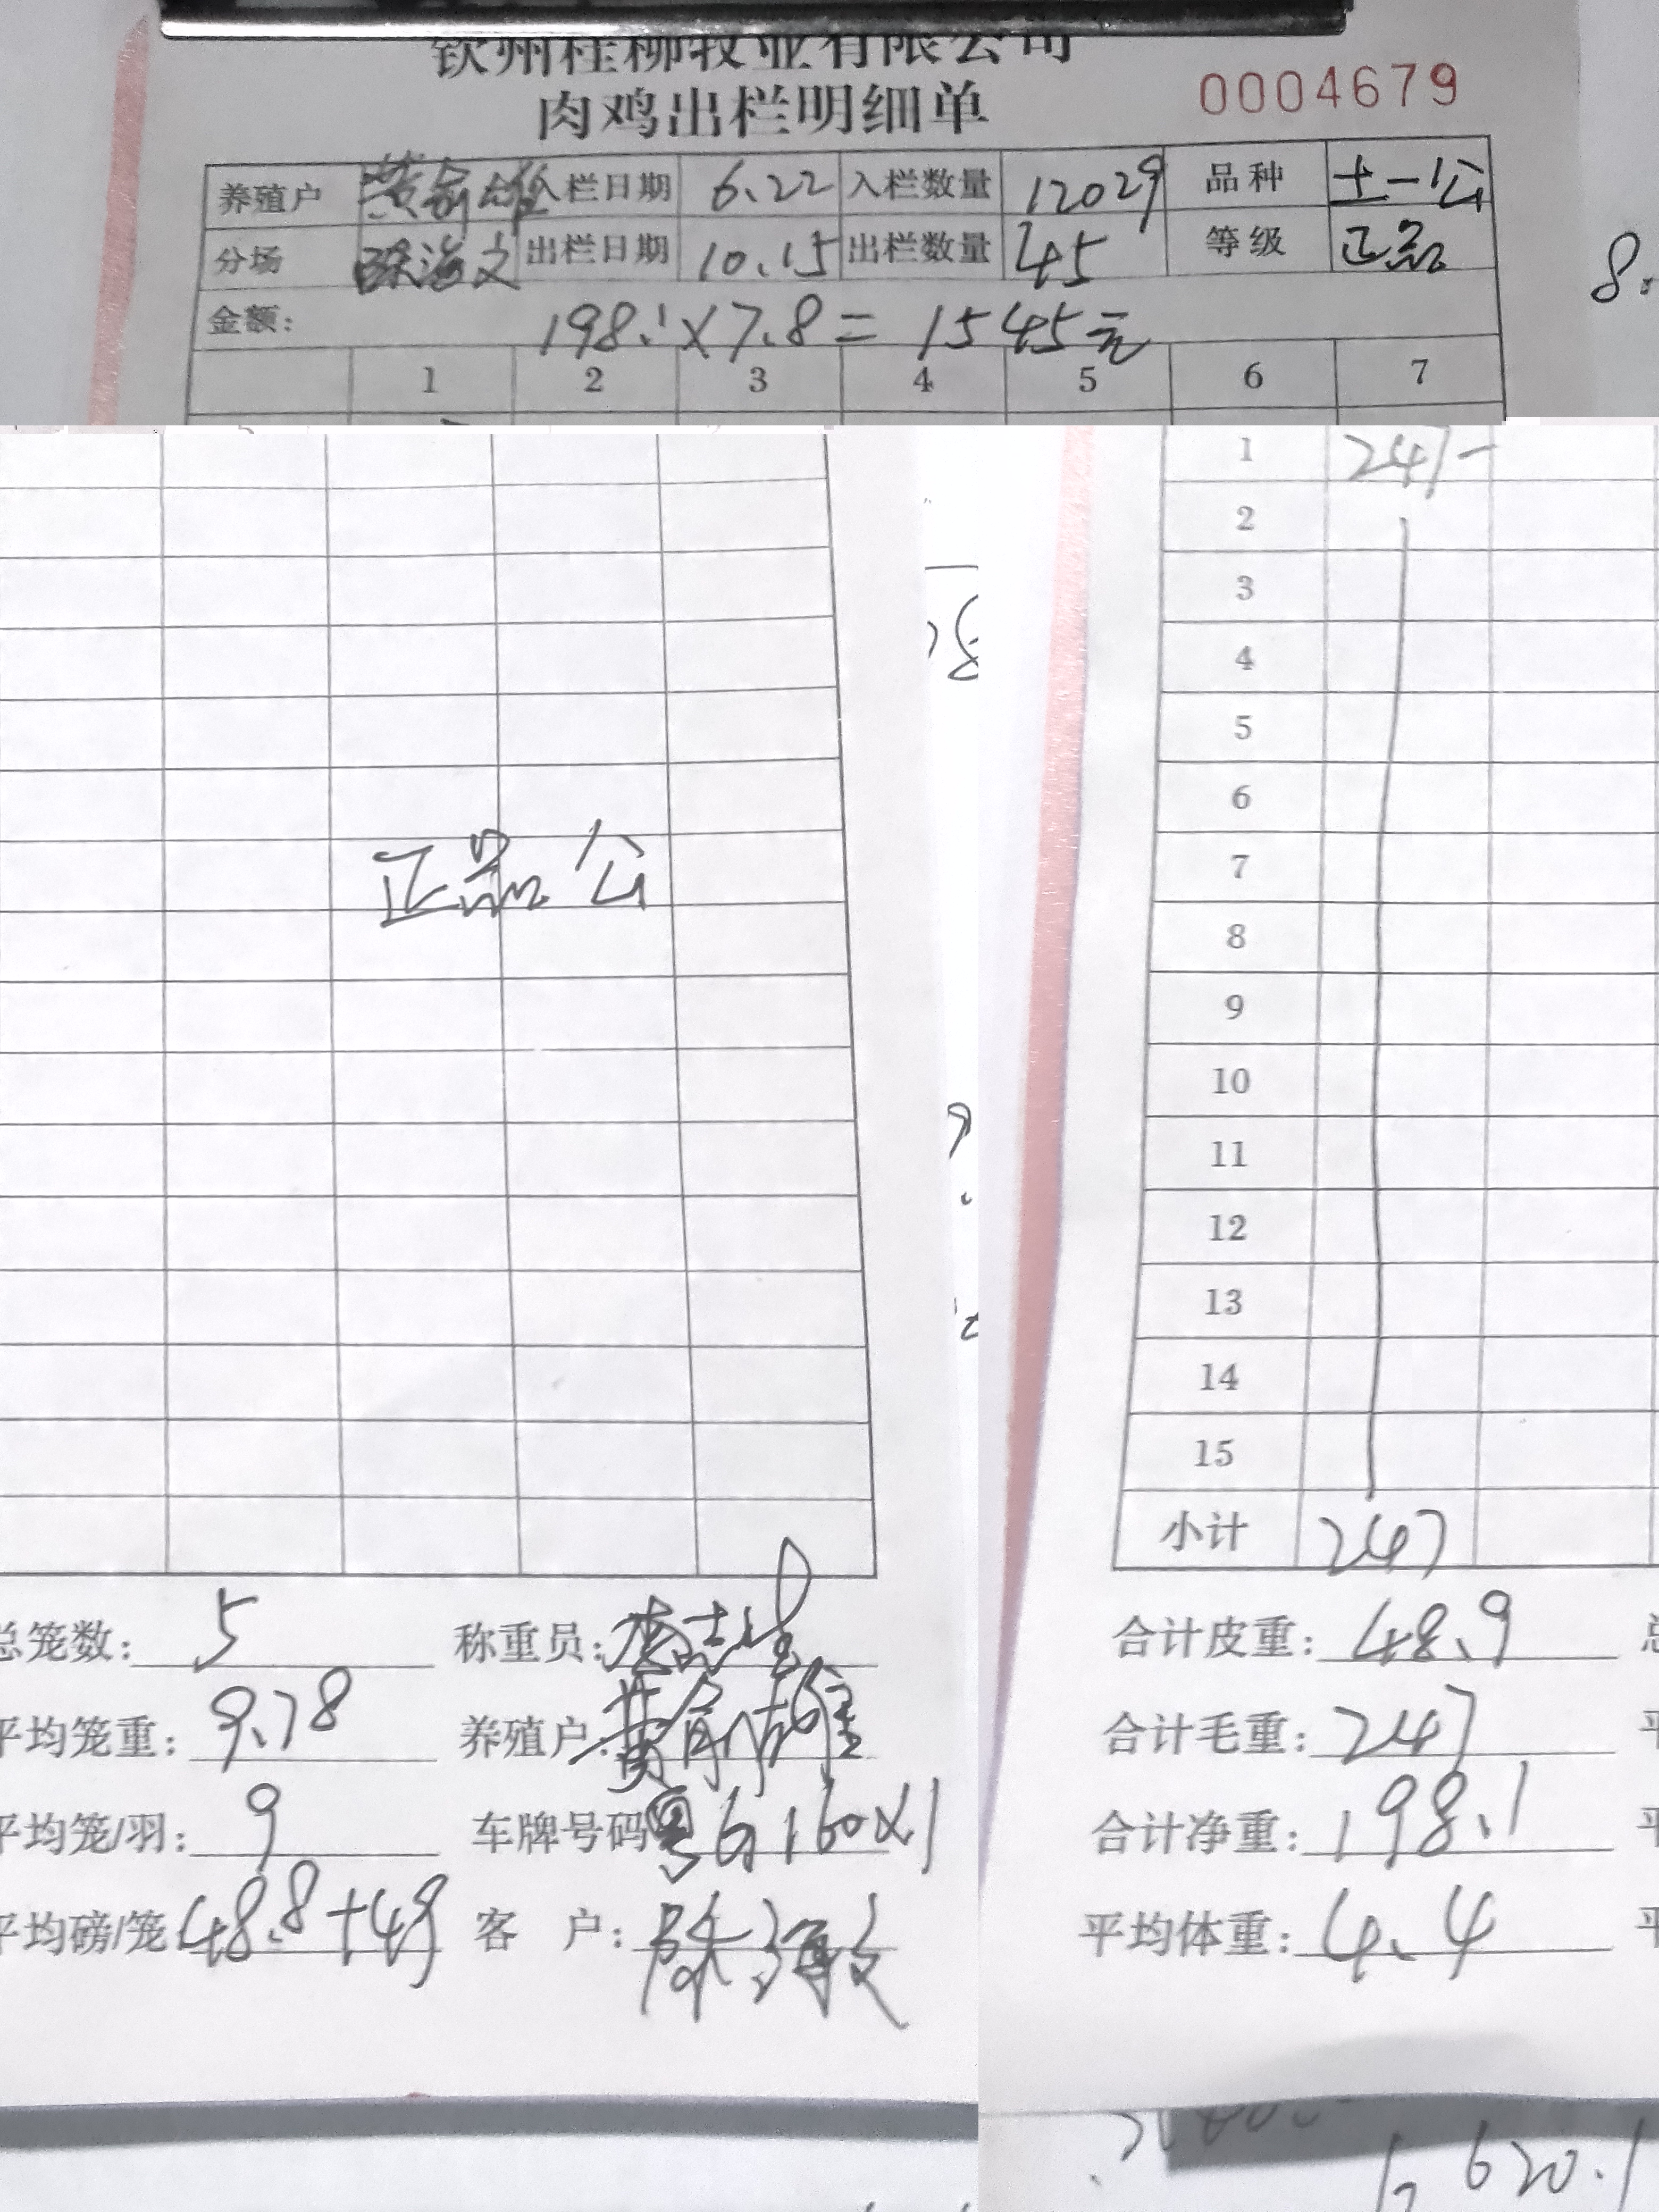 钦州桂柳牧业有限公司
肉鸡出栏明细单
0004679
养殖户 入栏日期 6.22 入栏数量 12029 品种 土一公
分场 陈海文 出栏日期 10.15 出栏数量 45 等级 正品
金额: 198.1×7.8=1545元
1 2 3 4 5 6 7
8.
正品公
总笼数: 5 称重员:
平均笼重: 9.78 养殖户:
平均笼/羽: 9 车牌号码
平均磅/笼 48.8+49 客 户: 陈海文
1 247-
2
3
4
5
6
7
8
9
10
11
12
13
14
15
小计 247
合计皮重: 48.9
合计毛重: 247
合计净重: 198.1
平均体重: 4.4
620.1